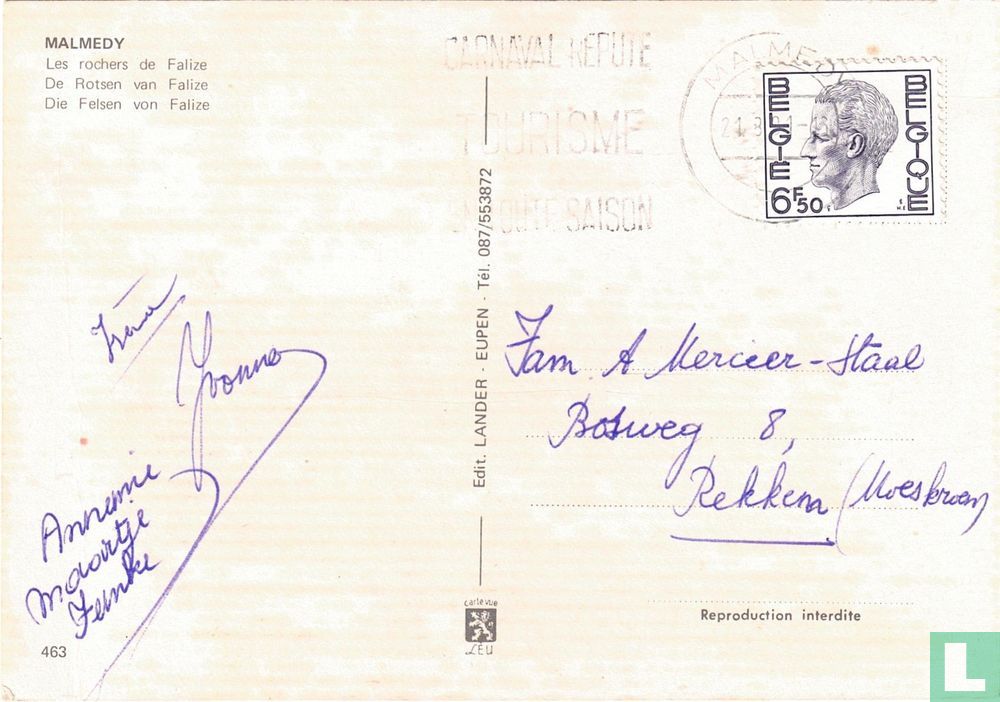 MALMEDY
Les rochers de Falize
De Rotsen van Falize
Die Felsen von Falize
CARNAVAL REPUTE
TOURISME
EN TOUTE SAISON
MALMEDY
BELGIE
BELGIQUE
6F50
Yvonne
Annemie
Maartje
Femke
463
Edit. LANDER - EUPEN - Tél. 087/553872
carte vue
LEU
Fam. A Mercier-Staal
Bosweg 8,
Rekkem (Moeskroen)
Reproduction interdite
L